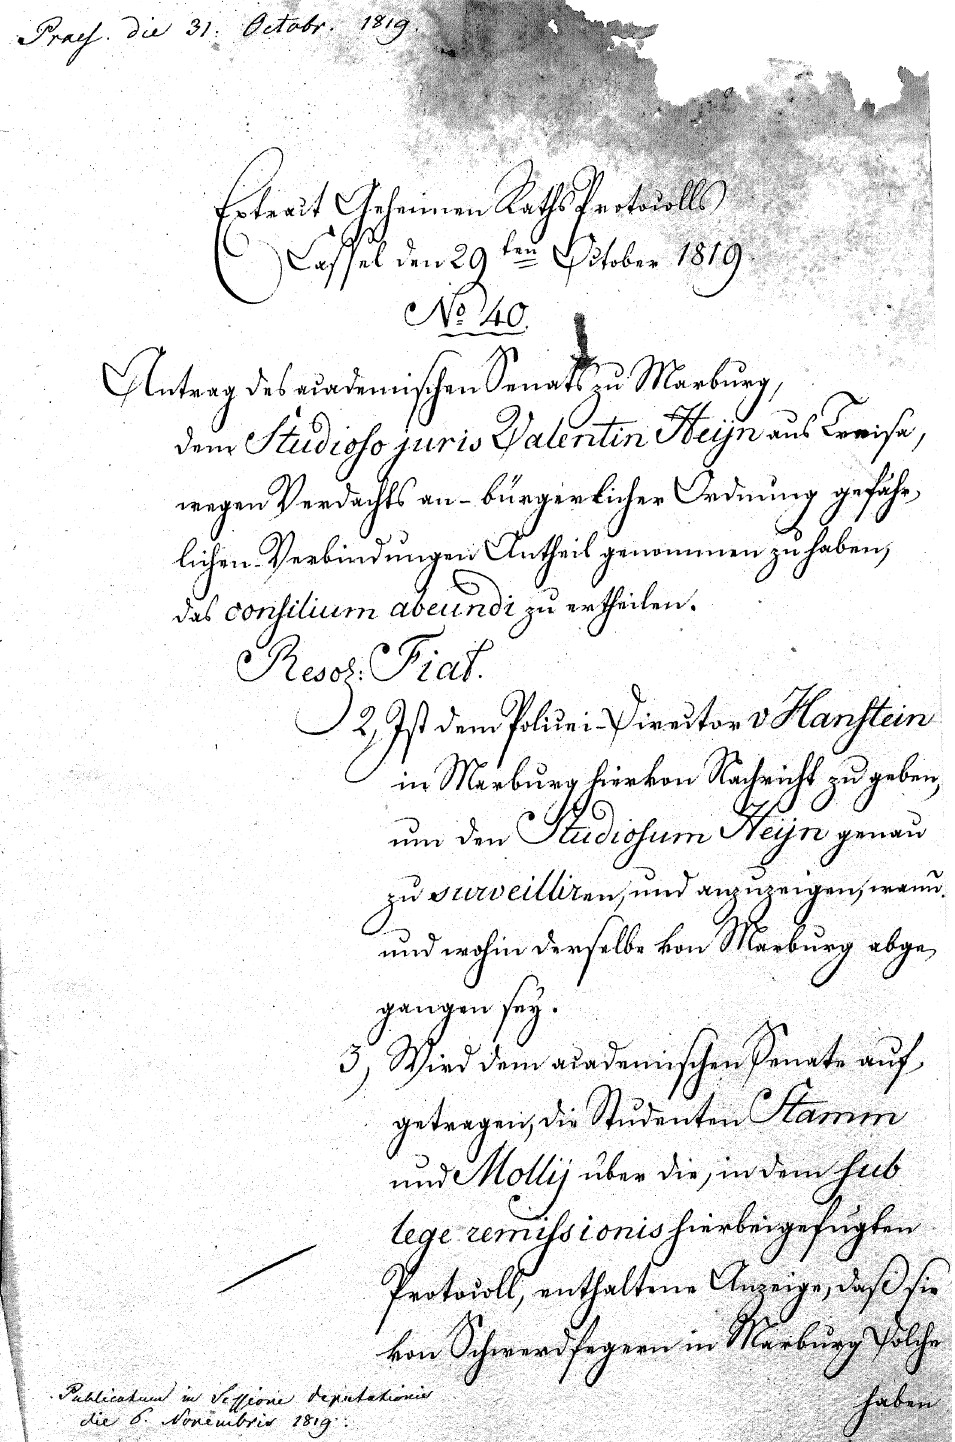 Praes. die 31. Octobr. 1819.
Extract Geheimen Raths Protocolls
Cassel den 29ten October 1819
No. 40.
Antrag des academischen Senats zu Marburg,
dem Studioso juris Valentin Heijn aus Treisa,
wegen Verdachts an bürgerlicher Ordnung gefähr-
lichen Verbindungen Antheil genommen zu haben,
das consilium abeundi zu ertheilen.
Resol: Fiat.
2, Ist dem Policei-Director v Hanstein
in Marburg hiervon Nachricht zu geben,
um den Studiosum Heijn genau
zu surveilliren, und anzuzeigen, wann
und wohin derselbe von Marburg abge-
gangen sey.
3, Wird dem academischen Senate auf-
getragen, die Studenten Stamm
und Mollij über die, in dem sub
lege remissionis hierbeigefügten
Protocoll, enthaltene Anzeige, daß sie
von Schwerdfegern in Marburg Dolche
haben
Publicatum in Sessione deputationis
die 6. Novembris 1819.